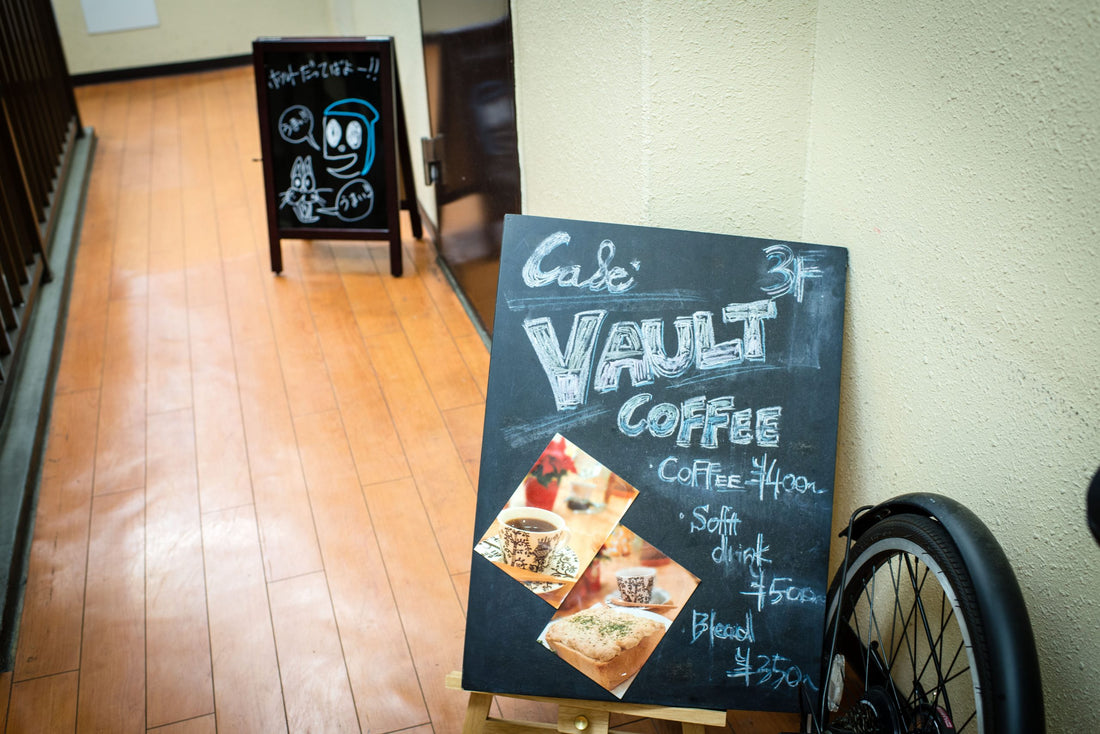 ホットだってばよー!!
うまい
うまい
Cafe
3F
VAULT
COFFEE
・COFFEE ¥400~
・Soft
drink
¥500~
・Blead
¥350~